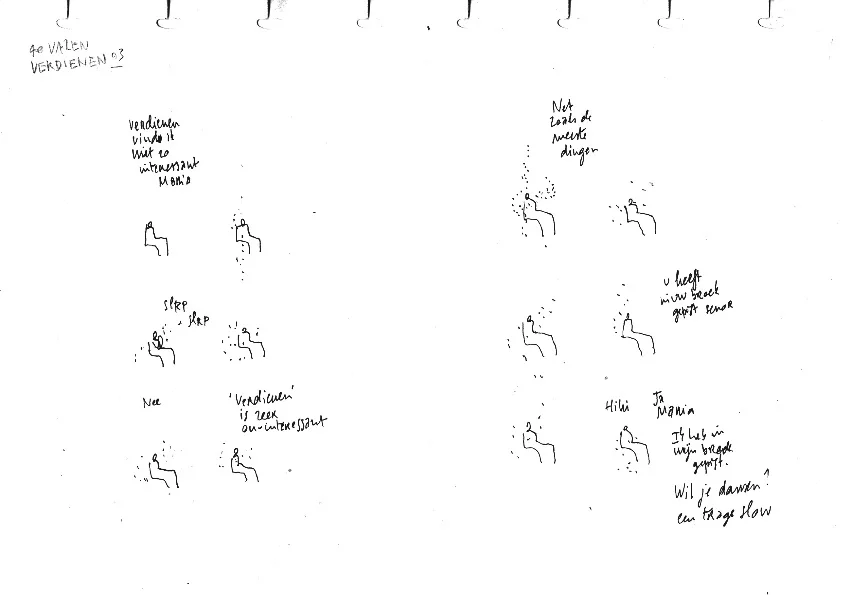 VERDIENEN 03
Verdienen
vind ik
niet zo
interessant
Maria
SLRP
SLRP
Nee
'Verdienen'
is zeer
on-interessant
Net
zoals de
meeste
dingen
U heeft
broek
gepist senor
Hihi
Ja
Maria
Ik heb in
mijn broek
gepist.
Wil je dansen?
een trage slow